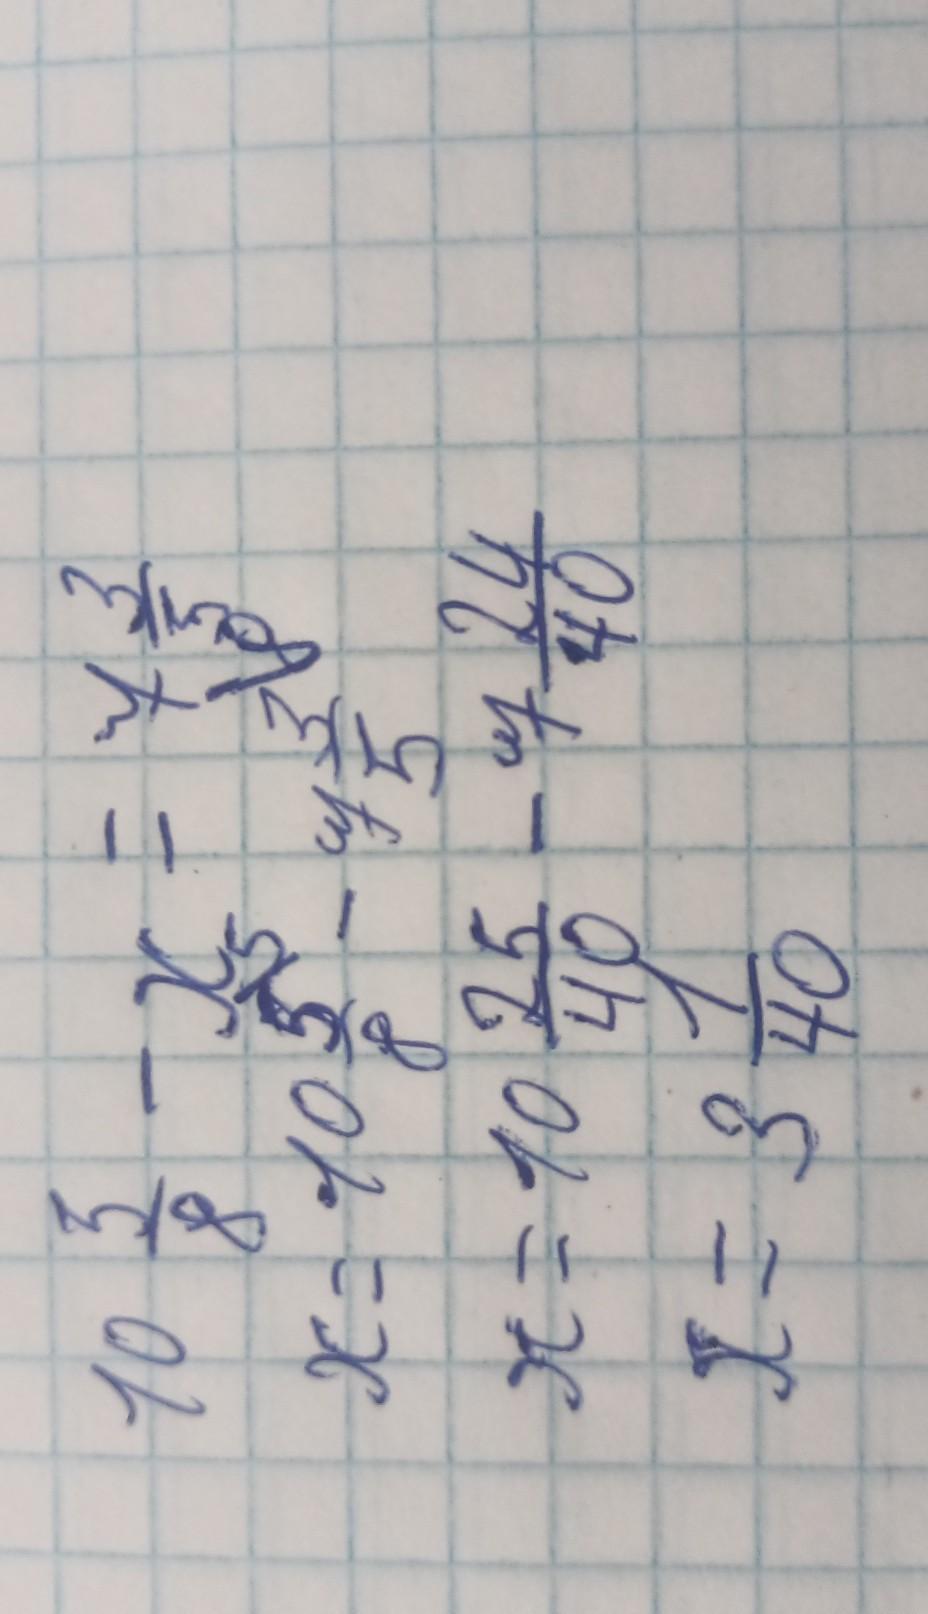 10 3/8 - x = 7 3/5
x = 10 5/8 - 7 3/5
x = 10 25/40 - 7 24/40
x = 3 1/40